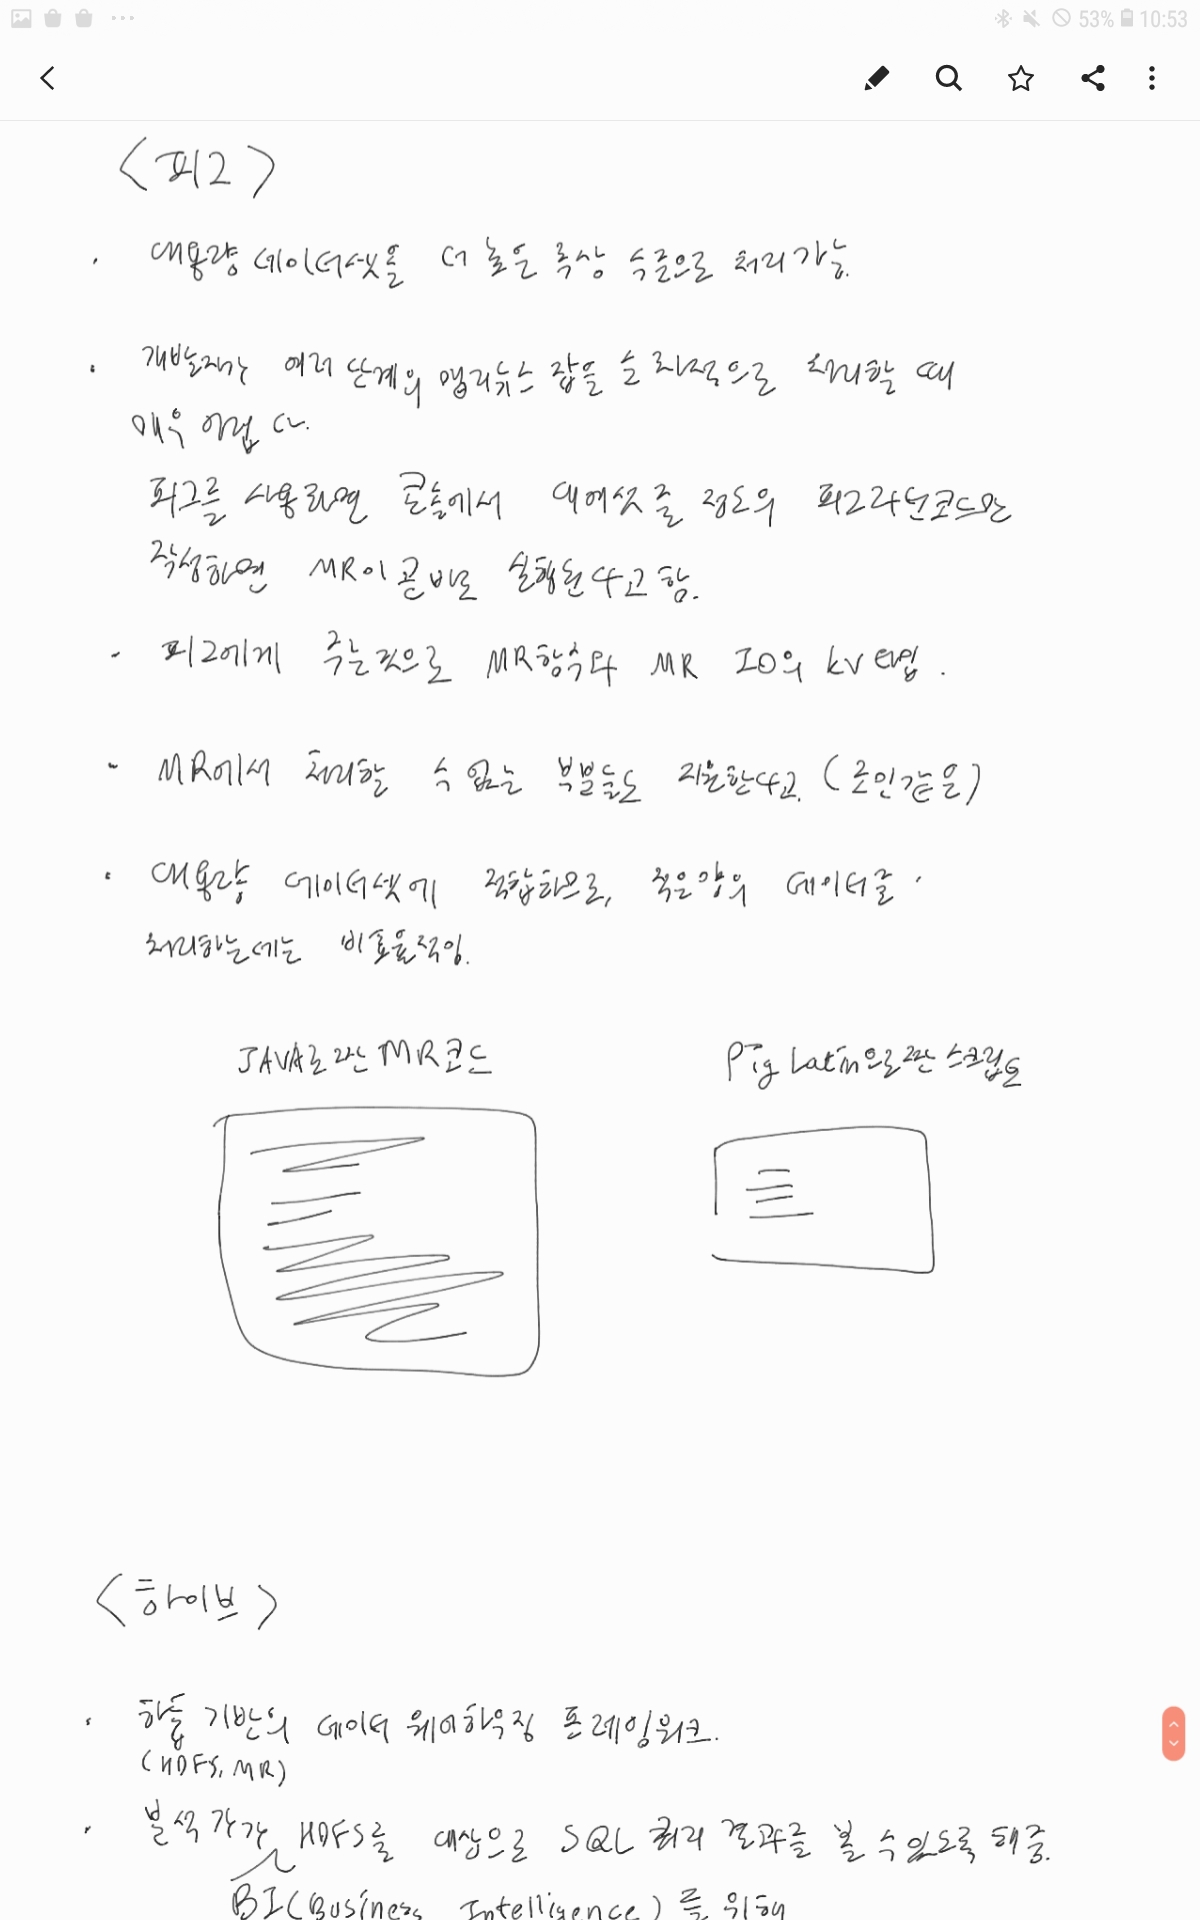 53% 10:53
<피그>
· 대용량 데이터셋을 더 높은 추상 수준으로 처리 가능.
· 개발자는 여러 단계의 맵리듀스 잡을 순차적으로 처리할 때
매우 어렵다.
피그를 사용하면 콘솔에서 대여섯 줄 정도의 피그라틴코드만
작성하면 MR이 곧바로 실행된다고 함.
- 피그에게 주는 것으로 MR함수와 MR IO의 kv 타입.
- MR에서 처리할 수 없는 부분들도 지원한다고. (조인같은)
· 대용량 데이터셋에 적합하므로, 적은양의 데이터를
처리하는데는 비효율적임.
JAVA로 짠 MR코드 Pig Latin으로 짠 스크립트
<하이브>
· 하둡 기반의 데이터 웨어하우징 프레임워크.
(HDFS, MR)
· 분석가가 HDFS를 대상으로 SQL 쿼리 결과를 볼 수 있도록 해줌.
BI(Business Intelligence)를 위해